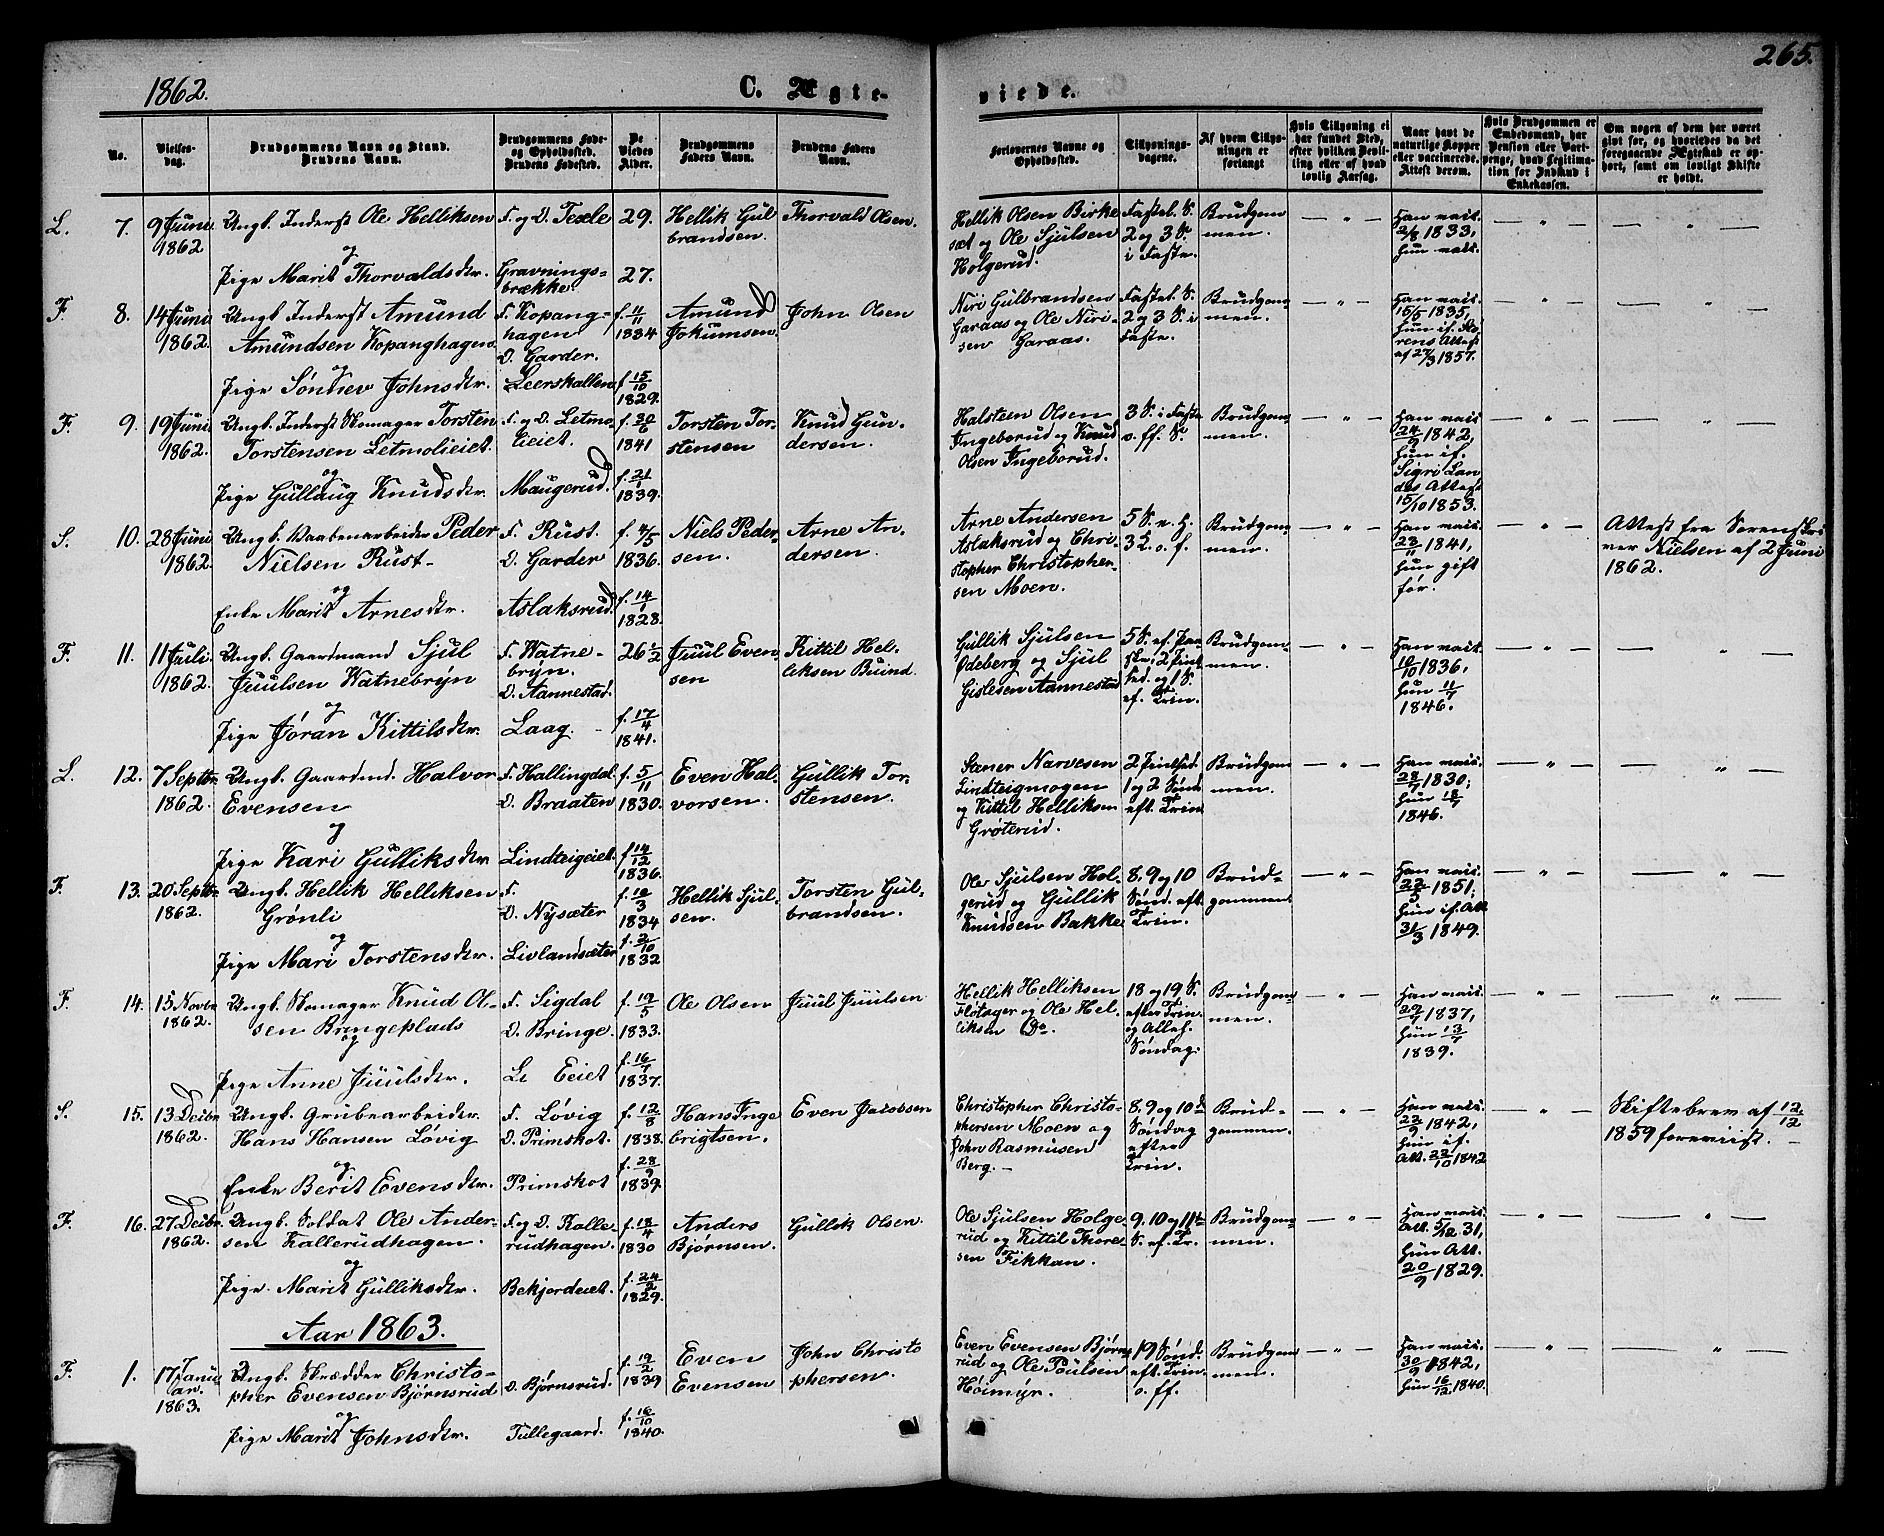 265.
1862.
C. Ægte-
viede.
No.
Vielses-
dag.
Brudgommens Navn og Stand.
Brudens Navn.
Brudgommens Føde-
og Opholdssted.
Brudens Fødested.
De
Viedes
Alder.
Brudgommens
Faders Navn.
Brudens Faders
Navn.
Forlovernes Navne og
Opholdssted.
Tillysnings-
dagene.
Af hvem Tillys-
ningen er
forlangt
Hvis Tillysning ei
har fundet Sted,
efter hvilken Bevil-
ling eller af hvad
lovlig Aarsag.
Naar havt de
naturlige Kopper
eller vaccinerede.
Attest derom.
Hvis Brudgommen er
Embedsmand, har
Pension eller Vart-
penge, hvad Legitima-
tion for Indskud i
Enkekassen.
Om nogen af dem har været
gift før, og hvorledes da det
foregaaende Ægteskab er op-
hørt, samt om lovligt Skifte
er holdt.
L. 7. 9 Juni
1862
Ungk. Inderst Ole Helliksen
og
Pige Marit Thorvaldsdtr.
F. og D. Texle
Gravnings-
brække.
29.
27.
Hellik Gul
brandsen.
Thorvald Olsen.
Hellik Olsen Birke
sæt og Ole Sjulsen
Holgerud.
Fastel. S.
2 og 3 S.
i Faste.
Brudgom
men.
Han vaic.
2/8 1833,
hun vacc.
F. 8. 14 Juni
1862.
Ungk. Inderst Amund
Amundsen Kopanghagen
og
Pige Sønnev Johnsdtr.
F. Kopang-
hagen
D. Garder.
Leerskallen
f. 11/11
1834
f. 15/10
1829.
Amund
Jokumsen.
John Olsen
Niri Gulbrandsen
Garaas og Ole Niri-
sen Garaas.
Fastel. S.
2 og 3 S. i
Faste.
Brudgom
men.
Han vaic.
15/5 1835,
hun if. So
rens Attest
af 27/3 1857.
F. 9. 19 Juni
1862.
Ungk. Inderst Skomager Torsten
Torstensen Letmolieiet.
og
Pige Gullaug Knudsdtr.
F. og D. Letmo-
lieiet.
Maugerud.
f. 30/6
1841
f. 21/1
1839.
Torsten Tor-
stensen
Knud Gun-
dersen.
Halsteen Olsen
Ingeborud og Knud
Olsen Ingeborud.
3 S. i Faste
o. ff. S.
Brudgom
men.
Han vaic
24/9 1842,
hun if.
Sigri Lan
des Attest
15/10 1853.
S. 10. 28 Juni
1862.
Ungk. Vaabenarbeider Peder
Nielsen Rust-
og
Enke Marit Arnesdtr.
F. Rust.
D. Garder
Aslaksrud.
f. 4/5
1836.
f. 14/1
1828.
Niels Peder-
sen.
Arne An-
dersen.
Arne Andersen
Aslaksrud og Chri-
stopher Christopher-
sen Moen.
5 S. e. H.
3 L. o. f.
Brudgom
men.
Han vaic.
23/11 1841,
hun gift
før.
Attest fra Sorenskri
ver Nielsen af 2 Juni
1862.
F. 11. 11 Juli
1862.
Ungk. Gaardmand Sjul
Juulsen Watnebryn
og
Pige Jøran Kittilsdtr.
F. Watne-
bryn.
D. Aannestad.
Laag.
26 1/2
f. 17/4
1841.
Juul Even
sen
Kittil Hel-
liksen Buind.
Gullik Sjulsen
Ødeberg og Sjul
Gislesen Aannestad
5 S. ef. Paa
ske, 2 Pint
sed. og 1 S.
ef. Trin.
Brudgom
men.
Han vaic.
10/10 1836,
hun 11/7
1846.
L. 12. 7 Septbr.
1862.
Ungk. Gaardmd. Halvor
Evensen
og
Pige Kari Gulliksdtr
F. Hallingdal
D. Braaten
Lindteigeiet.
f. 5/11
1830.
f. 14/12
1836.
Even Hal-
vorsen.
Gullik Tor-
stensen.
Stener Narvesen
Lindteigmogen
og Kittil Helliksen
Grøterud.
2 Pintsed.
1 og 2 Sønd
eft. Trin
Brudgom
men.
Han vaic.
28/7 1830;
hun 18/7
1846.
F. 13. 20 Septbr
1862.
Ungk. Hellik Helliksen
Grønli
og
Pige Mari Torstensdtr.
F.
D. Nysæter
Livlandsæter
f. 10/3
1834
f. 2/10
1832
Hellik Sjul-
sen.
Torsten Gul-
brandsen.
Ole Sjulsen Hol-
gerud og Gullik
Knudsen Bakke
8. 9 og 10
Sønd. eft.
Trin.
Brud-
gommen.
Han vaic.
22/3 1851;
hun if. Att
31/3 1849.
F. 14. 15 Novbr
1862.
Ungk. Skomager Knud Ol-
sen Bringeplads
og
Pige Anne Juulsdtr.
F. Sigdal
D. Bringe.
Li Eeiet
f. 19/5
1833.
f. 16/7
1837.
Ole Olsen
Juul Juulsen
Hellik Helliksen
Fløtager og Ole Hel-
liksen Do
18 og 19 S.
efter Trin.
og Alleh.
Søndag.
Brudgom
men.
Han vaic.
20/7 1837,
hun 13/7
1839.
S. 15. 13 Decbr
1862.
Ungk. Grubearbeider
Hans Hansen Løvig
og
Enke Berit Evensdtr.
F. Løvig
D. Primskot.
Primskot
f. 12/8
1838.
f. 28/9
1839.
Hans Inge
brigtsen.
Even Jacobsen
Christopher Christo-
phersen Moen og
John Rasmusen
Berg.-
8. 9 og 10d
Søndag
efter
Trin.
Brud-
gommen.
Han vaic.
22/9 1842,
hun if.
Att. 22/10 1842
Skiftebrev af 12/12
1859 foreviist.
F. 16. 27 Decbr.
1862.
Ungk. Soldat Ole Ander-
sen Kallerudhagen.
og
Pige Marit Gulliksdtr.
F. og D. Kalle-
rudhagen.
Bekjordeiet.
f. 18/4
1830
f. 24/2
1829.
Anders
Bjørnsen.
Gullik Olsen.
Ole Sjulsen Holge-
rud og Kittil Thore-
sen Fikkan.
9. 10 og 11te
S. ef. Tr.
Brudgom
men.
Han vaic.
Att. 5/12 31,
hun Att.
20/9 1829.
Aar 1863.
F. 1. 17 Janu
ar.
1863.
Ungk. Skrædder Christo-
pher Evensen Bjørnsrud
og
Pige Marit Johnsdtr.
D. Bjørnsrud.
Tullegaard.
f. 19/2
1839
f. 16/10
1840.
Even
Evensen
John Christo
phersen.
Even Evensen Bjørns
rud og Ole Poulsen
Høimyr.
19 Sønd.
eft. Trin.
o. ff.
Brudgom
men.
Han vaic.
30/9 1842,
hun 16/12 1840.